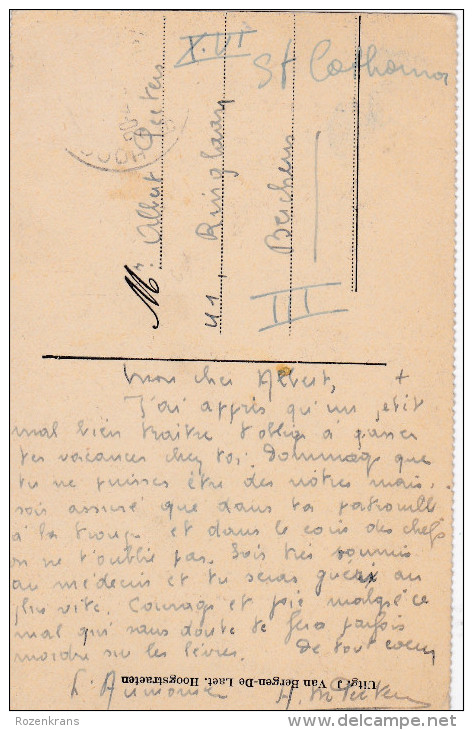 X.VI
St Catharina
Mr. Albert Peeters
41, Ringlaan
Berchem
III
Mon cher Albert, +
J'ai appris qu'un petit
mal bien traitre t'oblige à passer
tes vacances chez toi. Dommage que
tu ne puisses être des nôtres mais
sois assuré que dans ta patrouille
à la troupe et dans le coin des chefs
on ne t'oublie pas. Sois très soumis
au médecin et tu seras guéri au
plus vite. Courage et joie malgré ce
mal qui sans doute te fera parfois
mordre sur les lèvres. De tout coeur
L'Aumonier
Uitg. J. Van Bergen-De Laet. Hoogstraeten
Rozenkrans